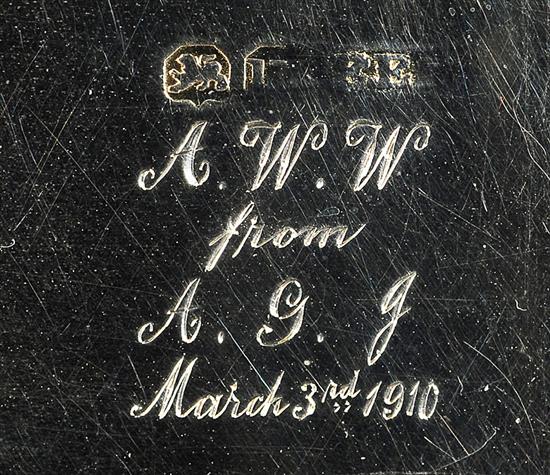 A. W. W
from
A. G. J
March 3rd 1910